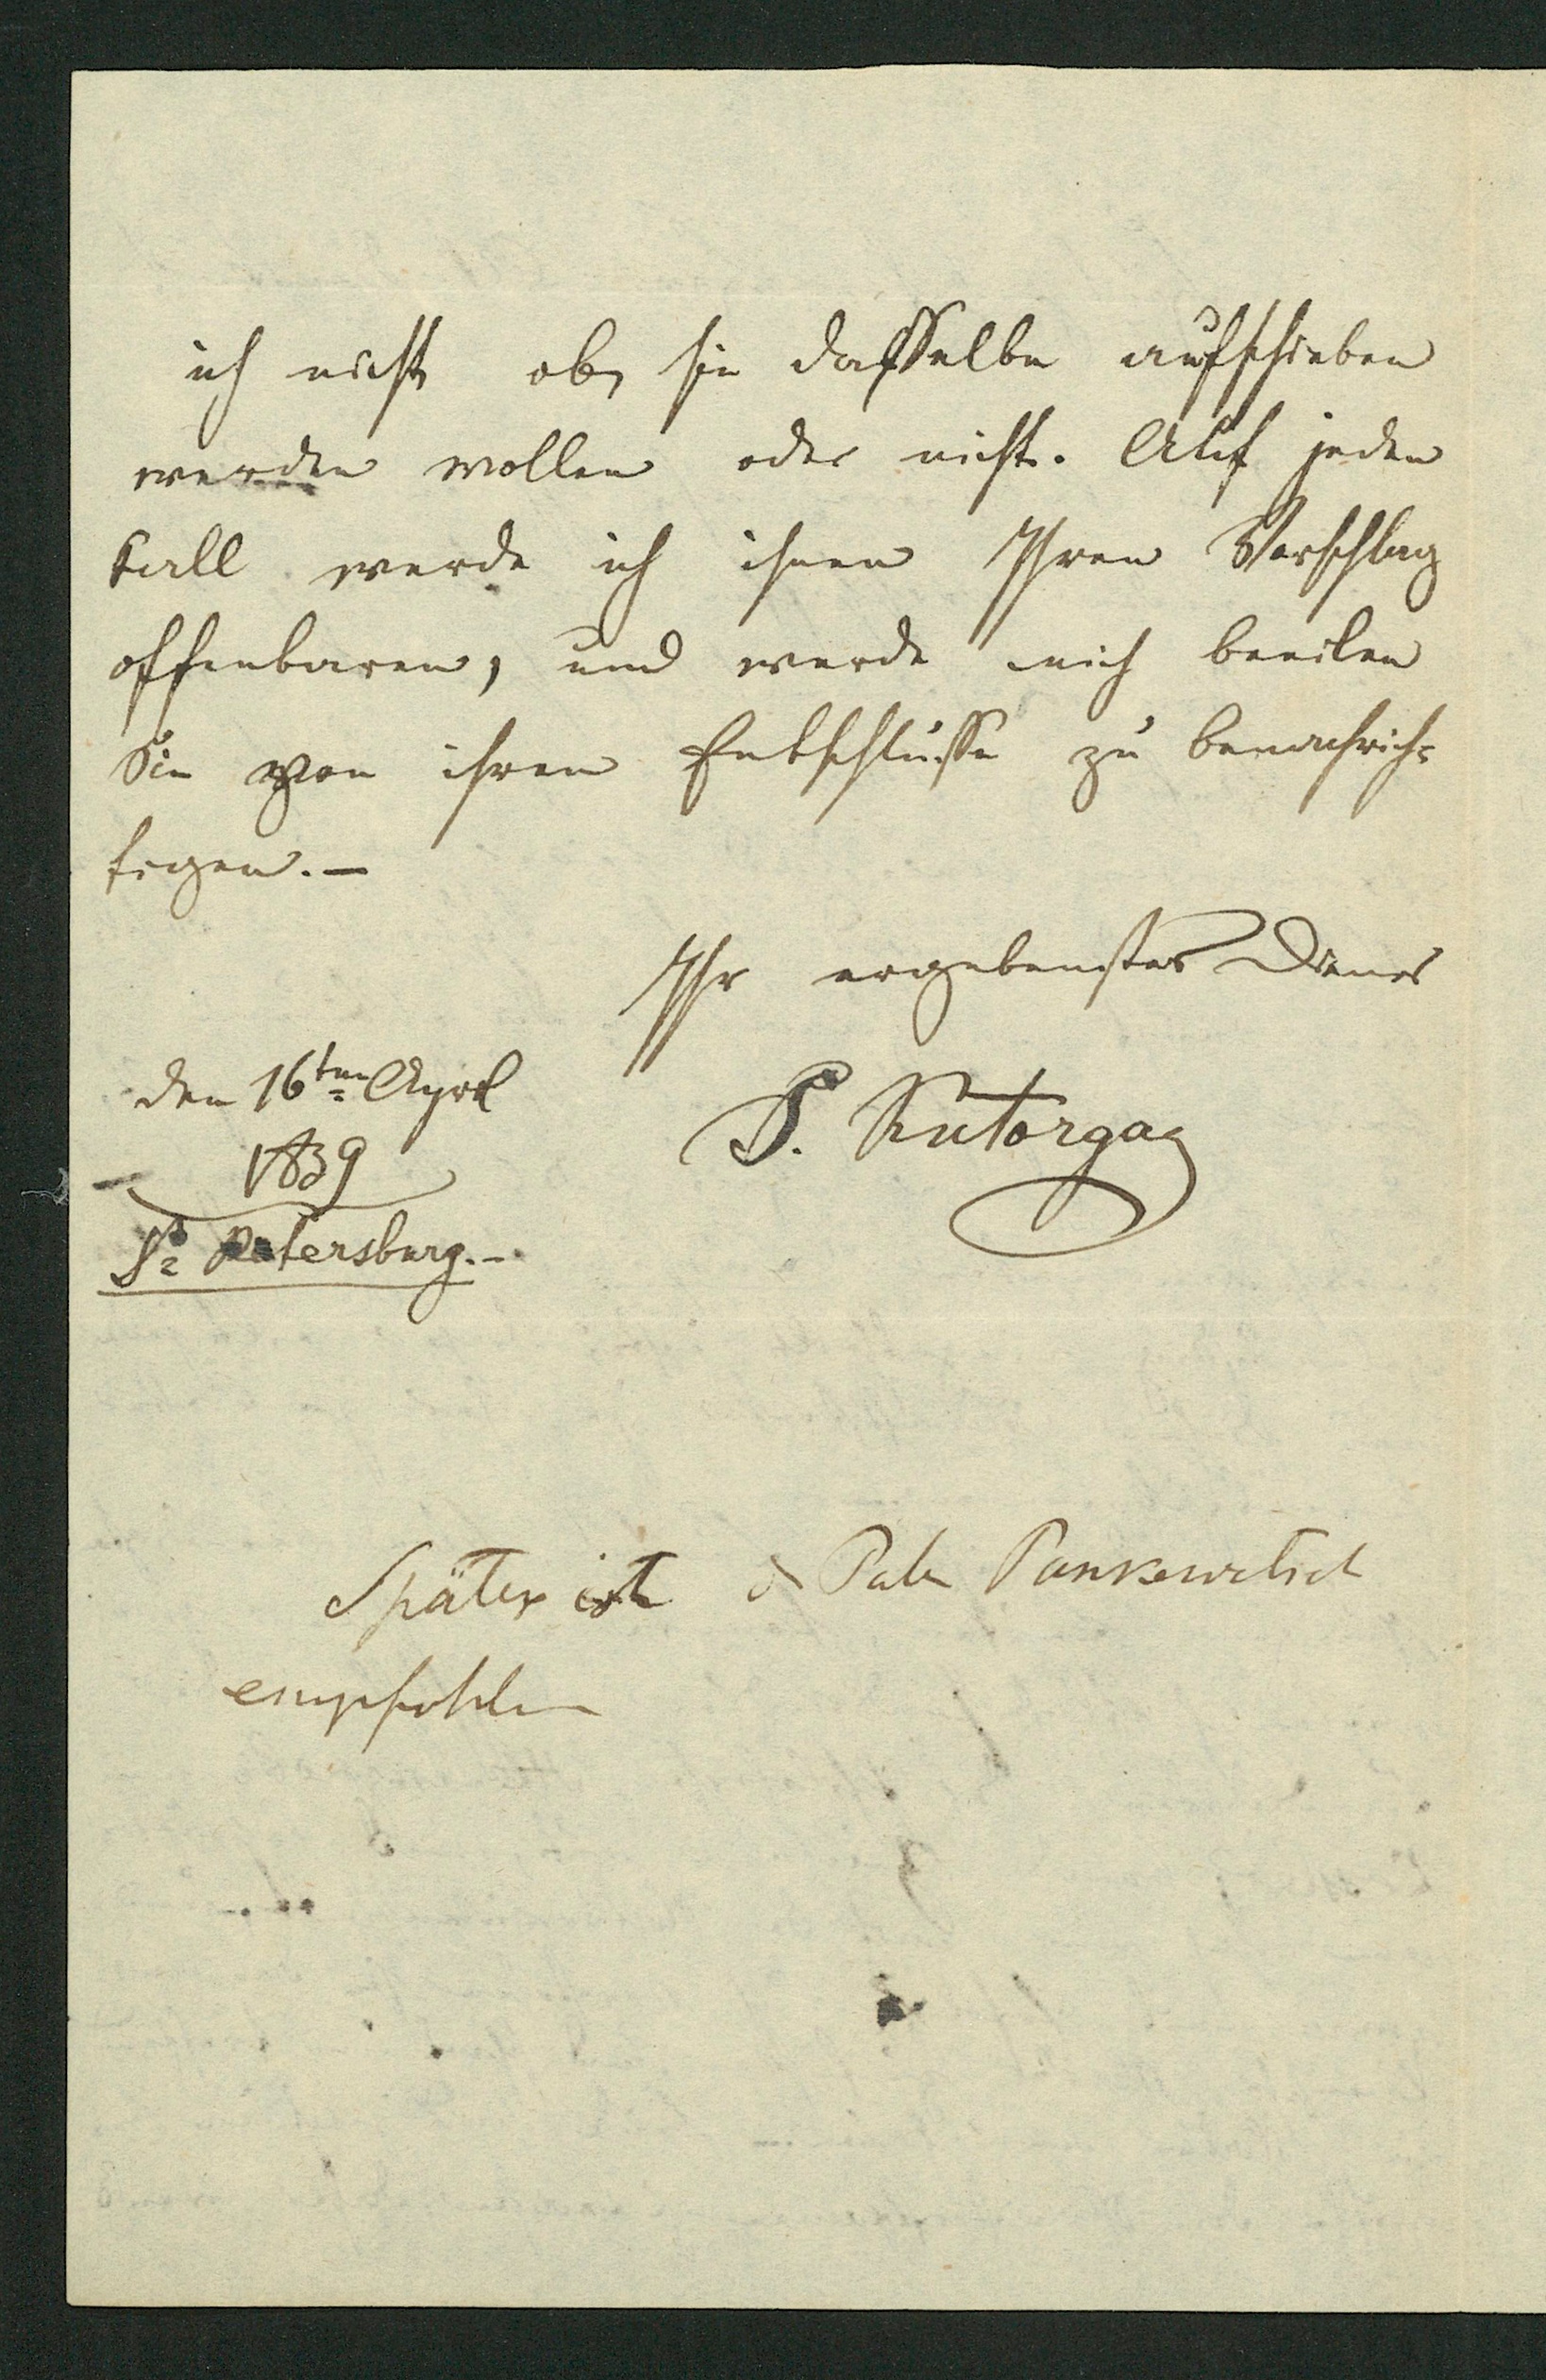 ich nicht ob sie dasselbe aufschieben
werden wollen oder nicht. Auf jeden
Fall werde ich ihnen Ihren Vorschlag
offenbaren, und werde mich beeilen
Sie von ihrem Entschlusse zu benachrich=
tigen. —
Ihr ergebenster Diener
den 16ten April
S. Kutorga
1839
St Petersburg. -
Später ist
empfohlen